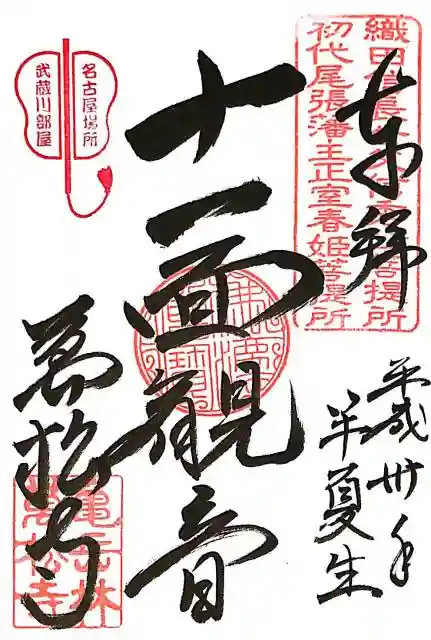 奉拝
織田信長
菩提所
初代尾張藩主正室春姫菩提所
平成卅年
半夏生
十一面観音
名古屋場所
武蔵川部屋
萬松寺
亀岳林
萬松寺